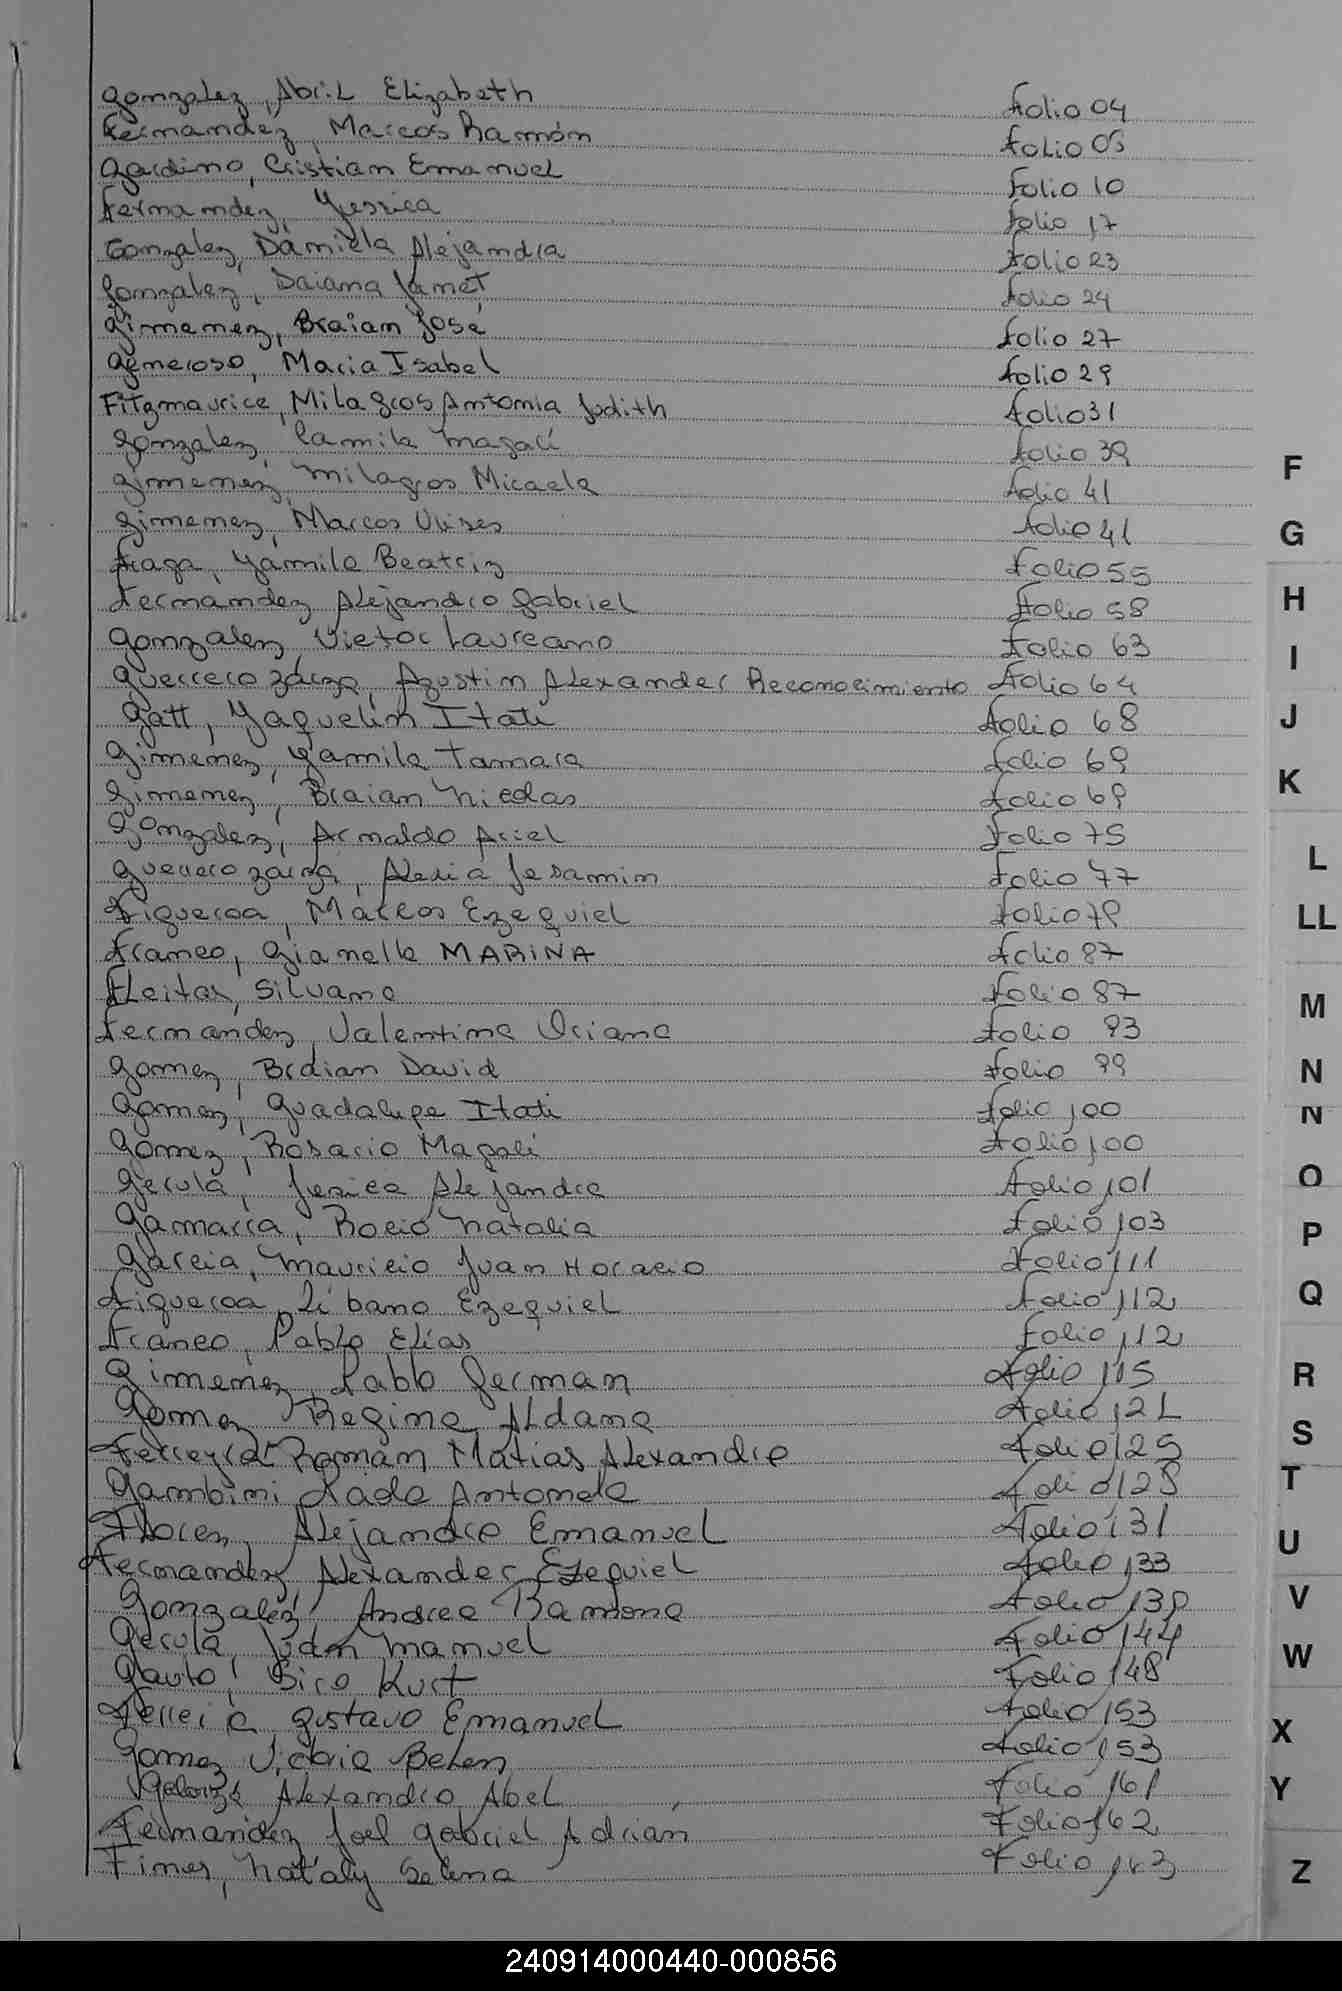 Gonzalez, Abril Elizabeth Folio 04
Fernandez, Marcos Ramón Folio 05
Gardino, Cristian Emanuel Folio 10
Fernandez, Yessica Folio 17
Gonzalez, Daniela Alejandra Folio 23
Gonzalez, Daiana Janet Folio 24
Gimenez, Braian José Folio 27
Generoso, Maria Isabel Folio 29
Fitzmaurice, Milagros Antonia Judith Folio 31
Gonzalez, Camila Magalí Folio 39
Gimenez, Milagros Micaela Folio 41
Gimenez, Marcos Ulises Folio 41
Fraga, Yamila Beatriz Folio 55
Fernandez, Alejandro Gabriel Folio 58
Gonzalez, Victor Laureano Folio 63
Guerrero Zarza, Agustin Alexander Reconocimiento Folio 64
Gatt, Yaquelin Itati Folio 68
Gimenez, Yamila Tamara Folio 69
Gimenez, Braian Nicolas Folio 69
Gonzalez, Arnaldo Ariel Folio 75
Guerrero Zarza, Alexia Jesamin Folio 77
Figueroa, Marcos Ezequiel Folio 79
Franco, Gianella MARINA Folio 87
Fleitas, Silvana Folio 87
Fernandez, Valentina Oriana Folio 93
Gomez, Bidian David Folio 99
Gomez, Guadalupe Itati Folio 100
Gomez, Rosario Magali Folio 100
Gerula, Jesica Alejandra Folio 101
Gamarra, Rocio Natalia Folio 103
Garcia, Mauricio Juan Horacio Folio 111
Figueroa, Libano Ezequiel Folio 112
Franco, Pablo Elías Folio 112
Gimenez, Pablo German Folio 115
Gomez Regina Aldana Folio 121
Ferreyra Roman Matias Alexandre Folio 125
Gambini Antonela Folio 128
Flores, Alejandro Emanuel Folio 131
Fernandez, Alexander Ezequiel Folio 133
Gonzalez, Andrea Ramona Folio 139
Gerula, Juan Manuel Folio 144
Gauto, Siro Kurt Folio 148
Ferreira Gustavo Emanuel Folio 153
Gomez Victoria Belen Folio 153
Alexandro Abel Folio 161
Fernandez Joel Gabriel Adrian Folio 162
Fines, Nataly Selena Folio
F
G
H
I
J
K
L
LL
M
N
N
O
P
Q
R
S
T
U
V
W
X
Y
Z
240914000440-000856